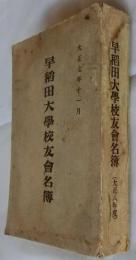 大正七年十一月
早稻田大學校友會名簿
早稻田大學校友會名簿
(大正八年度)